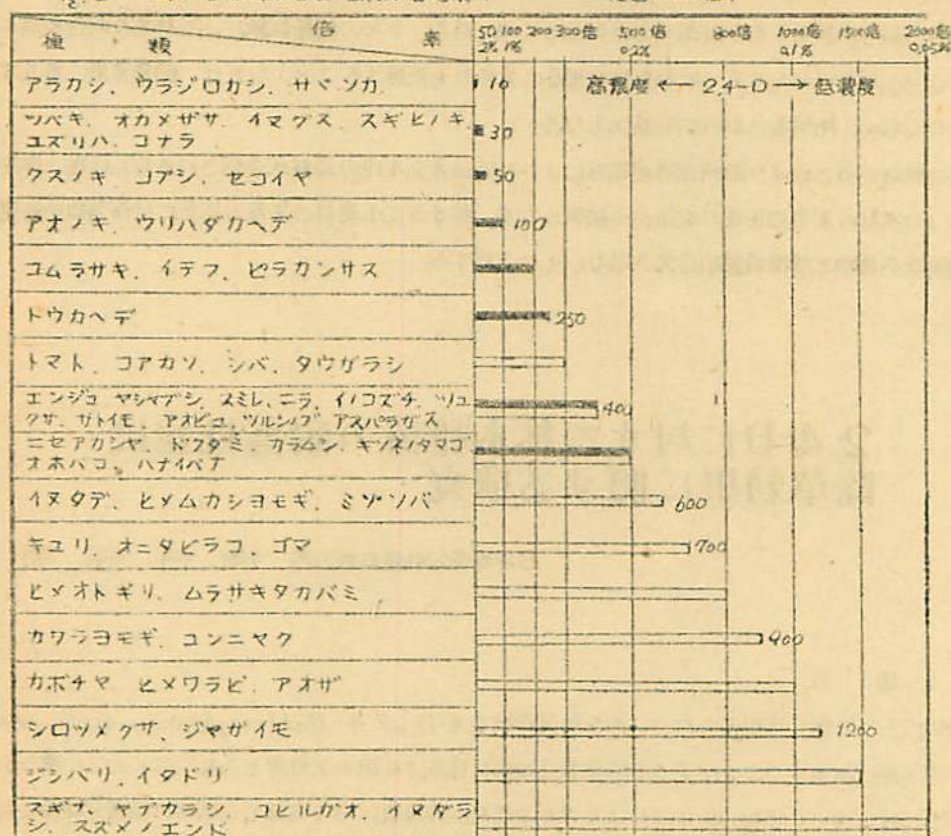 種類 倍率
50 100 200 300倍 500倍 800倍 1000倍 1500倍 2000倍
2% 1% 0.2% 0.1% 0.05%
アラカシ、ウラジロカシ、サザンカ 10 高濃度 ← 2,4-D → 低濃度
ツバキ、オカメザサ、イマグス、スギヒノキ
ユズリハ、コナラ 30
クスノキ コブシ、セコイヤ 50
アオノキ、ウリハダカヘデ 100
コムラサキ、イテフ、ピラカンサス
トウカヘデ 250
トマト、コアカソ、シバ、タウガラシ
エンジュ ヤシャブシ、スミレ、ニラ、イノコズチ、ツユ
クサ、サトイモ、アオビユ、ツルンブ アスパラガス 400
ニセアカシヤ、ドクダミ、カラムシ、キツネノタマゴ
オホバコ、ハナイバナ
イヌタデ、ヒメムカシヨモギ、ミゾソバ 600
キユリ、オニタビラコ、ゴマ 700
ヒメオトギリ、ムラサキタカバミ
カワラヨモギ、コンニヤク 900
カボチヤ、ヒメワラビ、アオザ
シロツメクサ、ジャガイモ 1200
ジシバリ、イタドリ
スギナ、ヤブカラシ、コヒルガオ、イヌガラ
シ、スズメノエンド